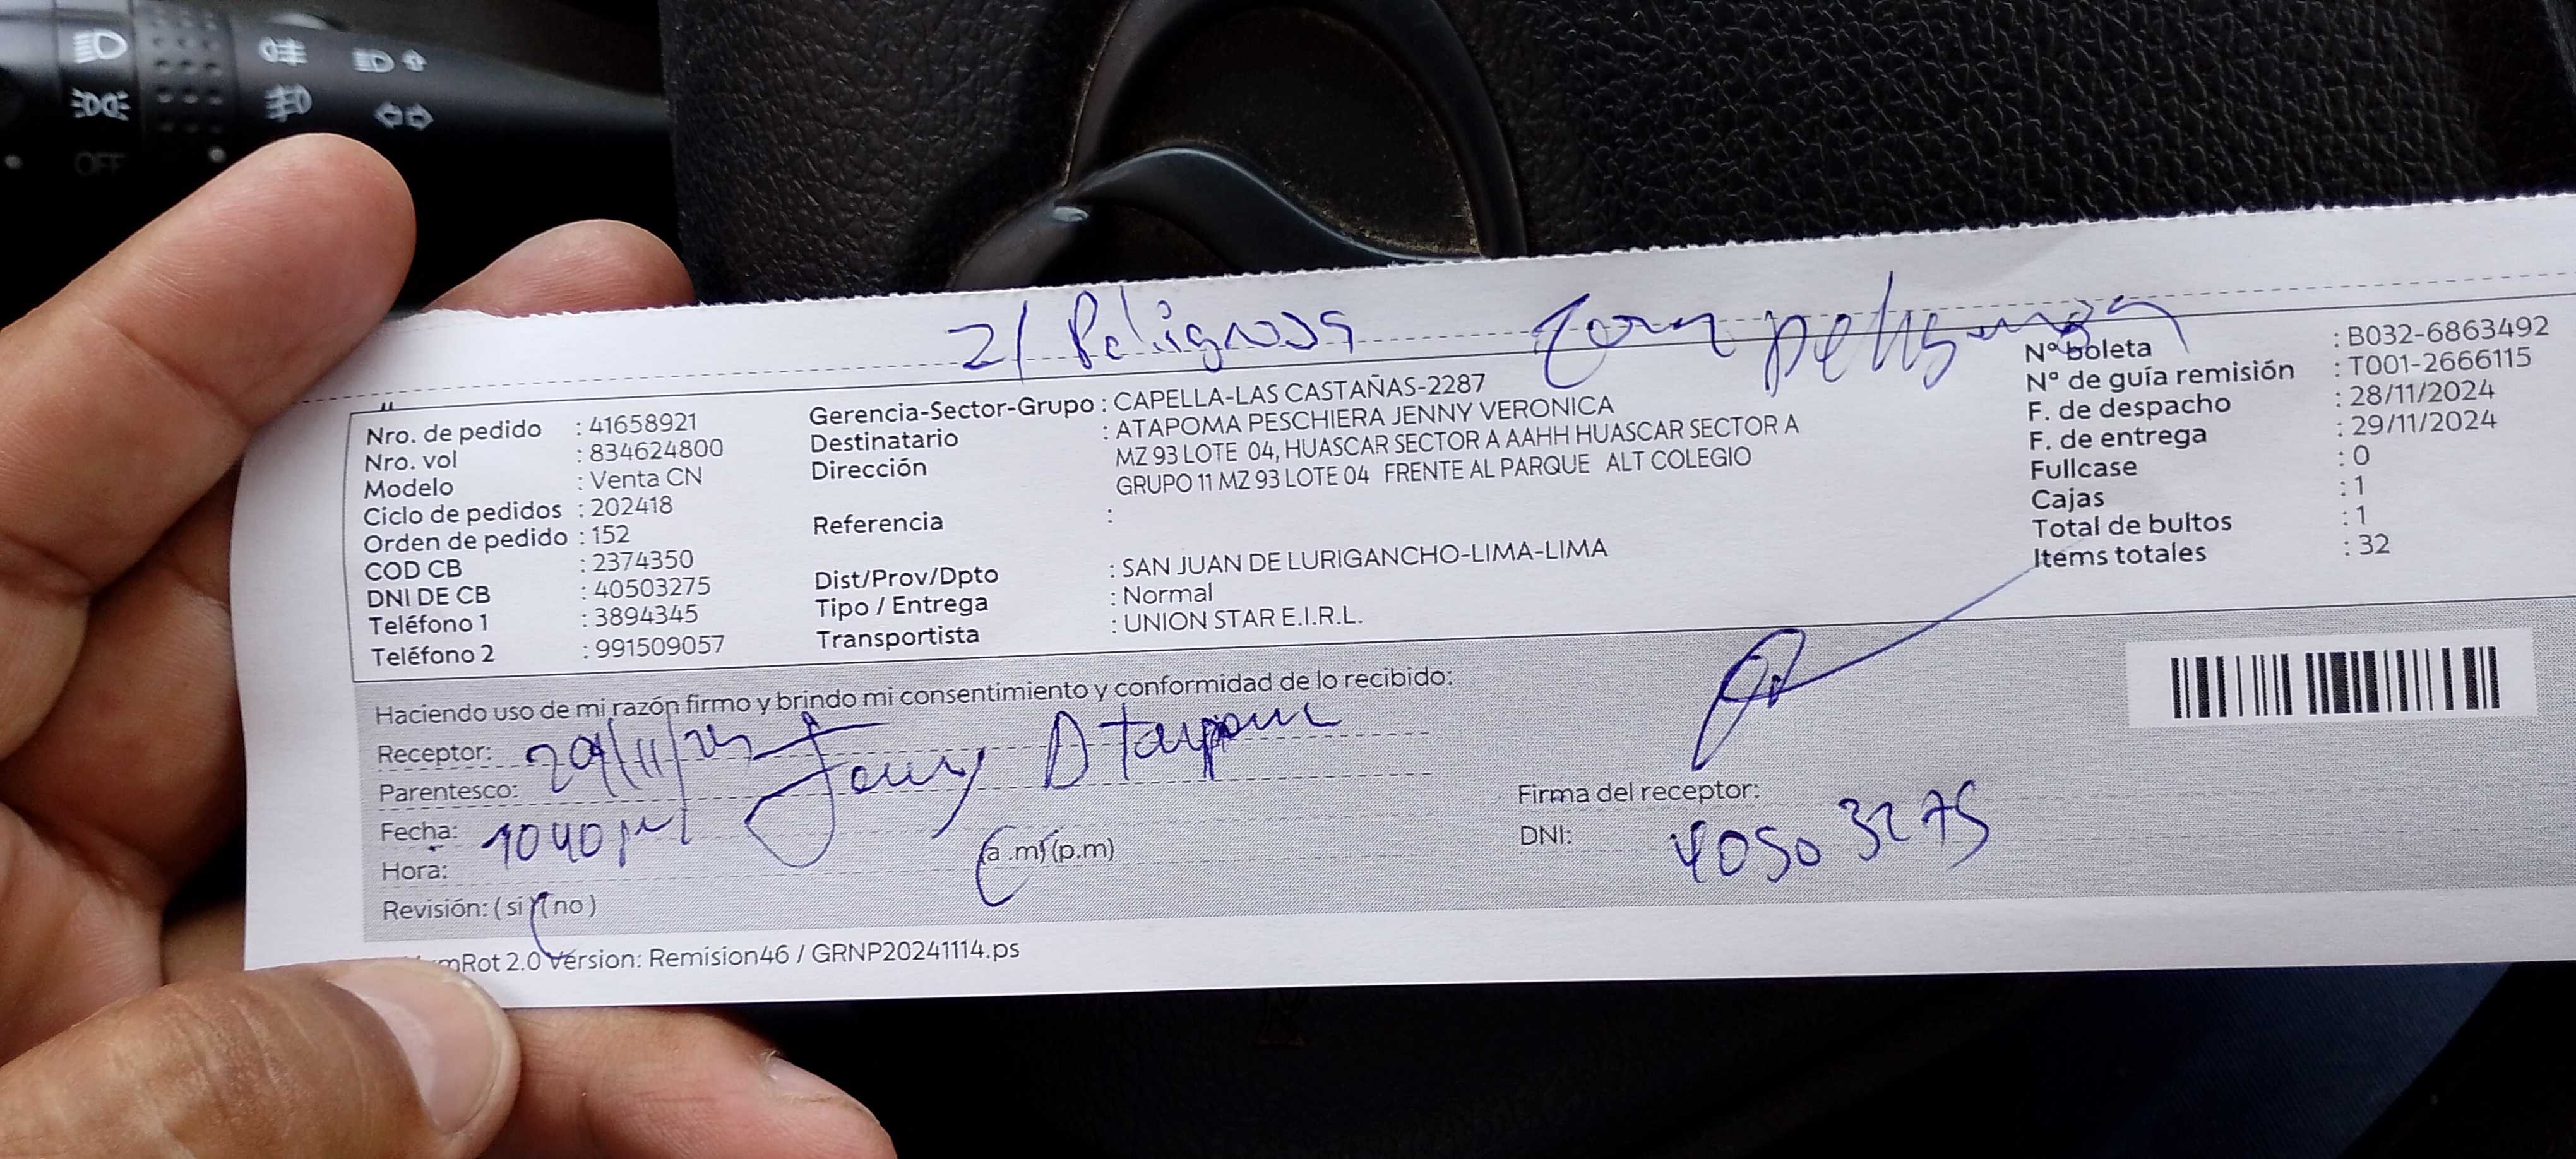 OFF
z/ Peligrosa Zona peligrosa
Nro. de pedido : 41658921
Nro. vol : 834624800
Modelo : Venta CN
Ciclo de pedidos : 202418
Orden de pedido : 152
COD CB : 2374350
DNI DE CB : 40503275
Teléfono 1 : 3894345
Teléfono 2 : 991509057
Gerencia-Sector-Grupo : CAPELLA-LAS CASTAÑAS-2287
Destinatario : ATAPOMA PESCHIERA JENNY VERONICA
Dirección MZ 93 LOTE 04, HUASCAR SECTOR A AAHH HUASCAR SECTOR A
GRUPO 11 MZ 93 LOTE 04 FRENTE AL PARQUE ALT COLEGIO
Referencia :
Dist/Prov/Dpto : SAN JUAN DE LURIGANCHO-LIMA-LIMA
Tipo / Entrega : Normal
Transportista : UNION STAR E.I.R.L.
Nº boleta : B032-6863492
Nº de guía remisión : T001-2666115
F. de despacho : 28/11/2024
F. de entrega : 29/11/2024
Fullcase : 0
Cajas : 1
Total de bultos : 1
Items totales : 32
Haciendo uso de mi razón firmo y brindo mi consentimiento y conformidad de lo recibido:
Receptor: 29/11/24 Jenny Atapoma
Parentesco:
Fecha: 1040
Hora: (a .m) (p.m)
Revisión: ( si ) ( no )
Firma del receptor:
DNI: 40503275
mRot 2.0 Version: Remision46 / GRNP20241114.ps